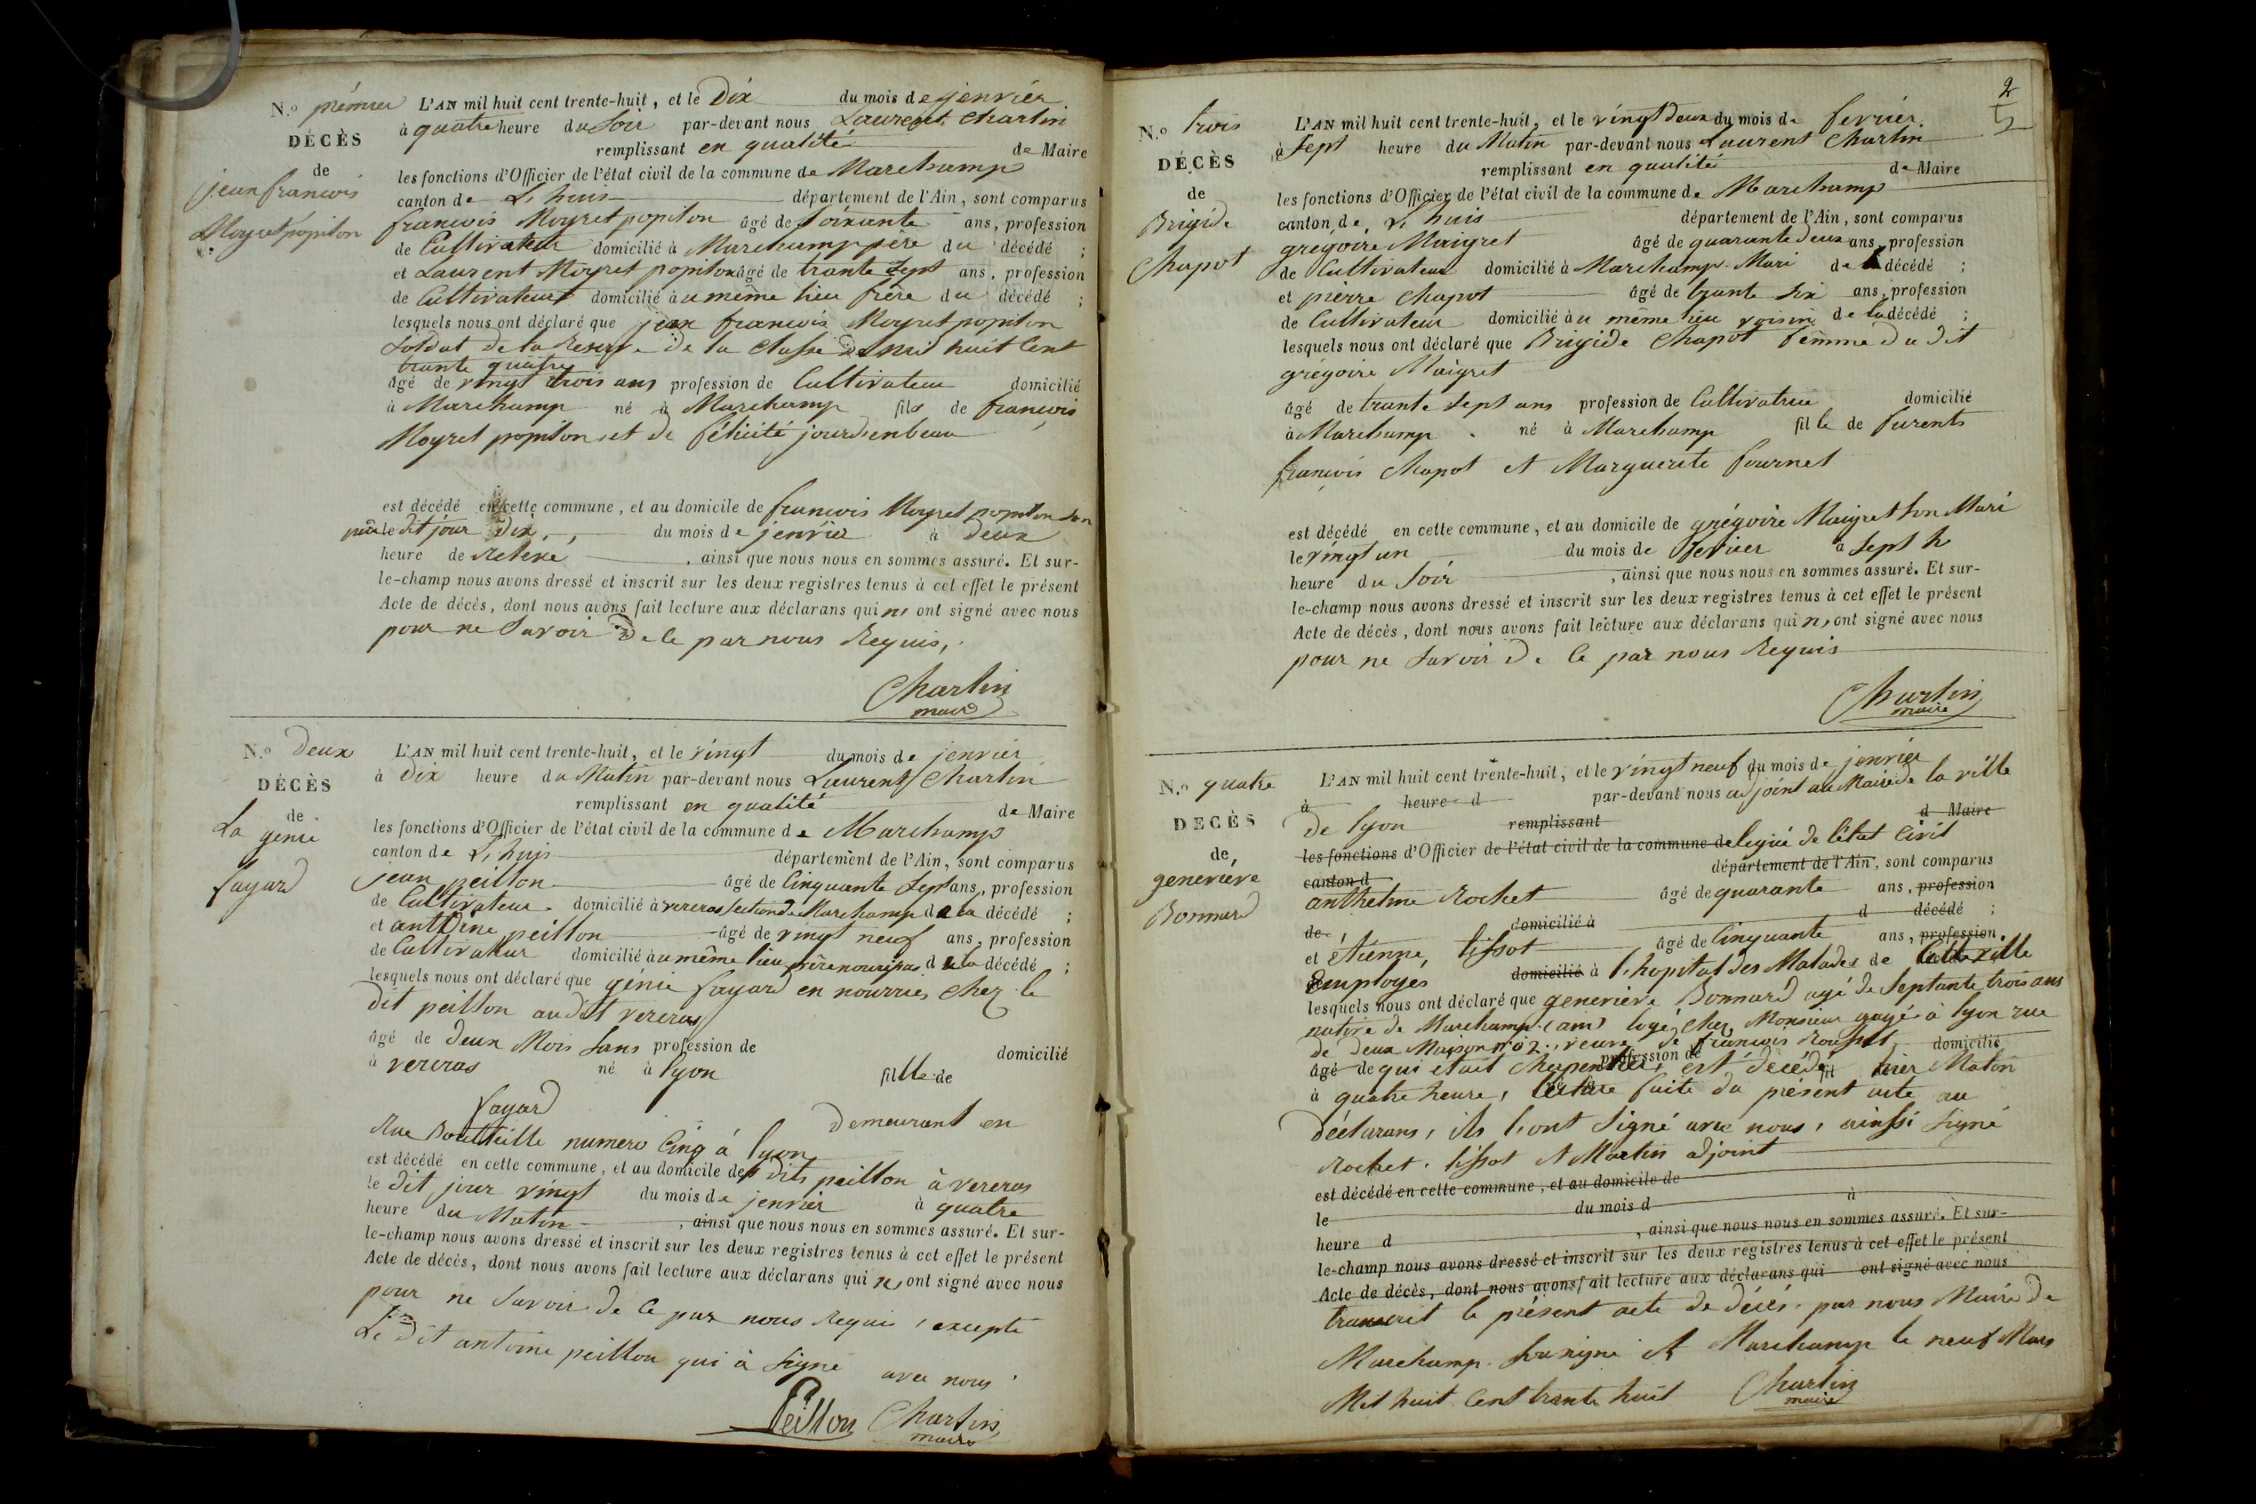 N.º prémier
DÉCÈS
de
jean francois
Moyret popiton
L'AN mil huit cent trente-huit, et le Dix du mois de jenviér
à quatre heure du Soir par-devant nous Laurent Charlin
remplissant en qualité de Maire
les fonctions d'Officier de l'état civil de la commune de Marchamp
canton de L. huis département de l'Ain, sont comparus
francois Moyret popiton âgé de Soixante ans, profession
de Cultivateur domicilié à Marchamp pére du décédé ;
et Laurent Moyret popiton âgé de trante Sept ans, profession
de Cultivateur domicilié à u même lieu frére du décédé ;
lesquels nous ont déclaré que jean francois Moyret popiton
Soldat de la Reserve de la Classe de mil huit Cent
trante quatre
âgé de vingt trois ans profession de Cultivateur domicilié
à Marchamp né à Marchamp fils de françois
Moyret popiton et de félicité jourdenbeau
est décédé en cette commune, et au domicile de francois Moyret popiton son
pére le dit jour dix du mois de jenviér à Deux
heure de Releve , ainsi que nous nous en sommes assuré. Et sur-
le-champ nous avons dressé et inscrit sur les deux registres tenus à cet effet le présent
Acte de décès, dont nous avons fait lecture aux déclarans qui n, ont signé avec nous
pour ne Savoir De Ce par nous Requis,
Charlin
maire
N.º Deux
DÉCÈS
de
La génie
fayard
L'AN mil huit cent trente-huit, et le vingt du mois de jenviér
à Dix heure du Matin par-devant nous Laurent Charlin
remplissant en qualité de Maire
les fonctions d'Officier de l'état civil de la commune de Marchamp
canton de L. huis département de l'Ain, sont comparus
jean peillon âgé de Cinquante Sept ans, profession
de Cultivateur domicilié à vereras Section de Marchamp de la décédé ;
et antoine peillon âgé de vingt neuf ans, profession
de Cultivateur domicilié à u même lieu pére nouriças de la décédé ;
lesquels nous ont déclaré que génie fayard en nourries Chez le
Dit peillon au dit vereras
âgé de Deux Mois Sans profession de domicilié
à vereras né à lyon fille de
fayard Demeurant en
Rue Bouteille numero Cinq à lyon
est décédé en cette commune, et au domicile des dits peillon à vereras
le dit jour vingt du mois de jenvier à quatre
heure du Matin , ainsi que nous nous en sommes assuré. Et sur-
le-champ nous avons dressé et inscrit sur les deux registres tenus à cet effet le présent
Acte de décès, dont nous avons fait lecture aux déclarans qui n, ont signé avec nous
pour ne Savoir de Ce par nous Requis, excepté
Le dit antoine peillon qui à Signé avec nous
Peillon Charlin
maire
2
5
N.º trois
DÉCÈS
de
Brigide
Chapot
L'AN mil huit cent trente-huit, et le vingt Deux du mois de fevriér
à Sept heure du Matin par-devant nous Laurent Charlin
remplissant en qualité de Maire
les fonctions d'Officier de l'état civil de la commune de Marchamp
canton de L. huis département de l'Ain, sont comparus
grégoire Maigret âgé de quarante Deux ans, profession
de Cultivateur domicilié à Marchamp Mari de la décédé ;
et piérre Chapot âgé de trante Six ans, profession
de Cultivateur domicilié à u même lieu voisin de la décédé ;
lesquels nous ont déclaré que Brigide Chapot femme du dit
grégoire Maigret
âgé de trante Sept ans profession de Cultivatrice domicilié
à Marchamp né à Marchamp fille de furents
françois Chapot et Marguerite fournet
est décédé en cette commune, et au domicile de grégoire Maigret Son Mari
le vingt un du mois de fevrier à Sept h
heure du Soir , ainsi que nous nous en sommes assuré. Et sur-
le-champ nous avons dressé et inscrit sur les deux registres tenus à cet effet le présent
Acte de décès, dont nous avons fait lecture aux déclarans qui n, ont signé avec nous
pour ne Savoir De Ce par nous Requis
Charlin
maire
N.º quatre
DECÈS
de
geneviéve
Bonnard
L'AN mil huit cent trente-huit, et le vingt neuf du mois de jenviér
à heure d par-devant nous adjoint au Maire de la ville
de lyon remplissant d Maire
les fonctions d'Officier de l'état civil de la commune de légué de létat Civil
canton d département de l'Ain, sont comparus
anthelme Rochet âgé de quarante ans, profession
de domicilié à d décédé ;
et étienne tissot âgé de Cinquante ans, profession
Employés domicilié à l, hopital des Malades de Cette ville
lesquels nous ont déclaré que geneviéve Bonnard agé de Septante trois ans
native de Marchamp (ain) logé, chez Monsieur gayé à lyon rue
de Deux Maison nº 2, veuve de francois Rouset domicilié
âgé de qui était Charpentier profession de est décédé fil hier Matin
à quatre heure, lecture faite du présent acte au
Déclarans, ils l, ont Signé avec nous, ainssi Signé
Rochet, tissot et Martin adjoint
est décédé en cette commune, et au domicile de
le du mois d à
heure d , ainsi que nous nous en sommes assuré. Et sur-
le-champ nous avons dressé et inscrit sur les deux registres tenus à cet effet le présent
Acte de décès, dont nous avons fait lecture aux déclarans qui ont signé avec nous
transcrit le présent acte de décés par nous Maire de
Marchamp Sousigné A Marchamp le neuf Mars
Mil huit Cent trante huit Charlin
maire